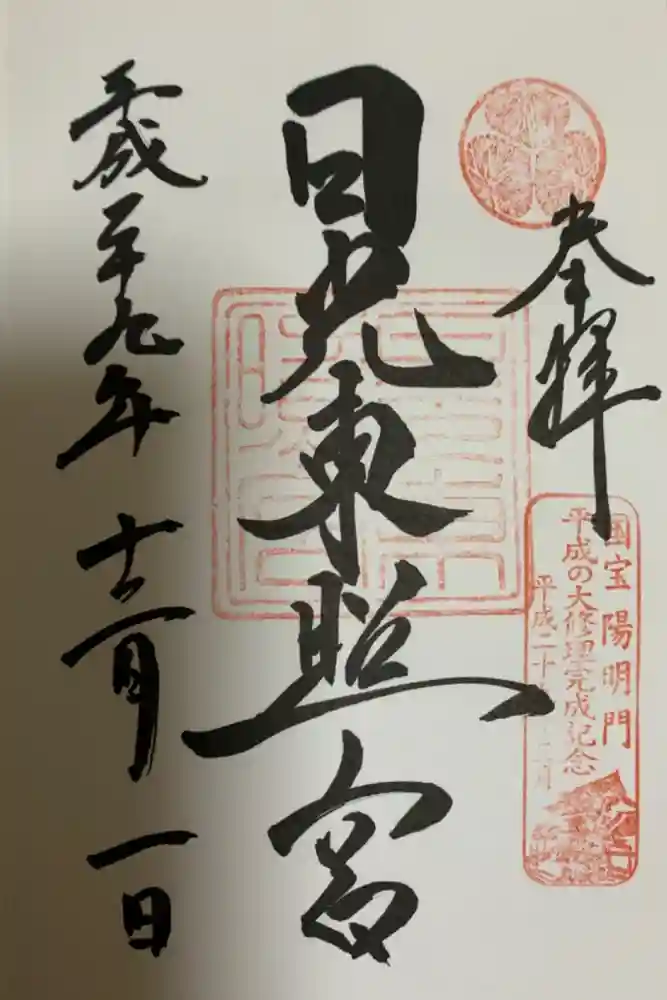 奉拝
国宝 陽明門
平成の大修理完成記念
平成二十
月
日光東照宮
平成二十九年 十二月 一日